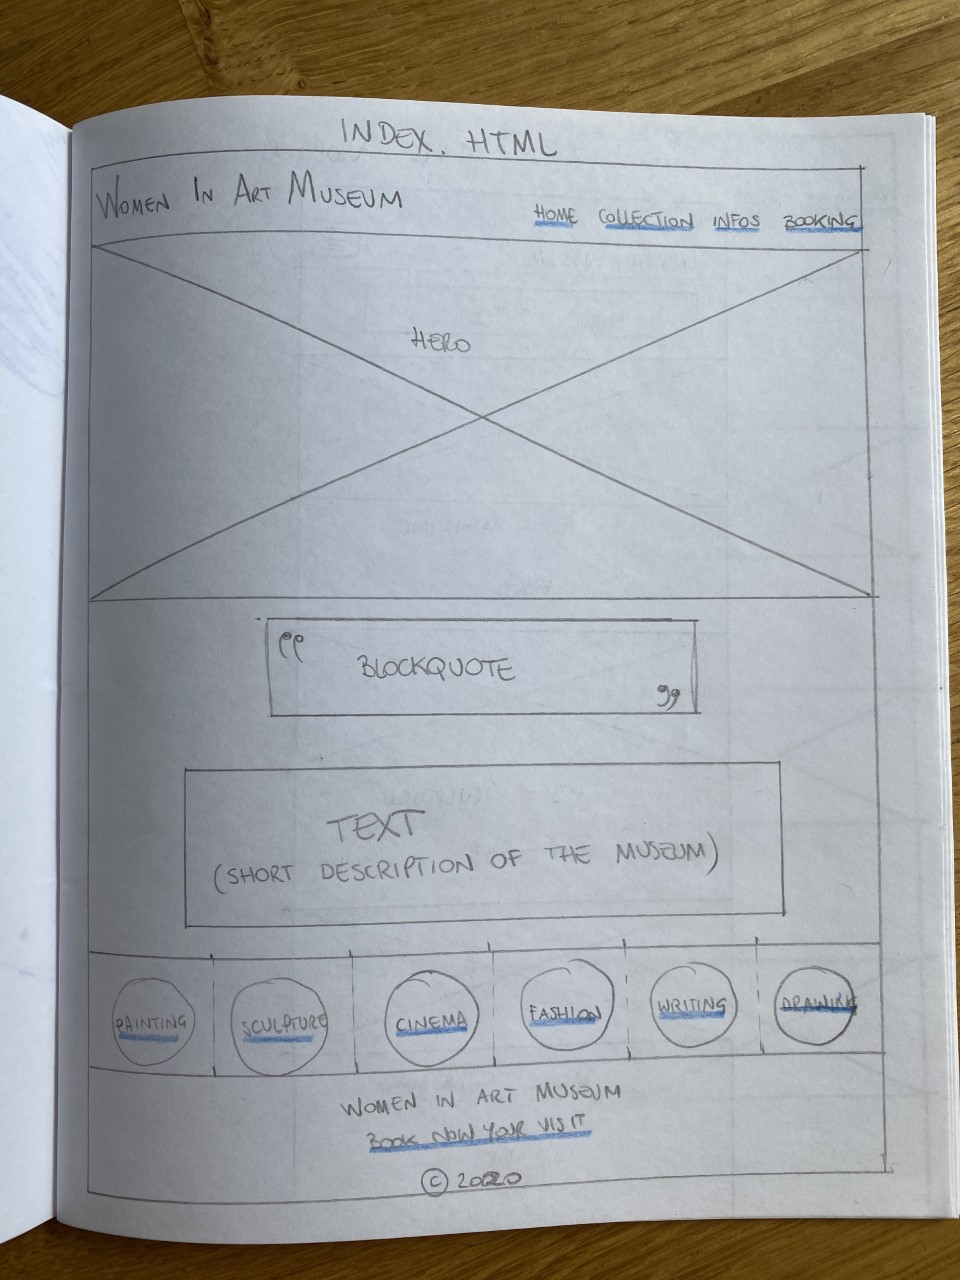 INDEX. HTML
WOMEN IN ART MUSEUM
HOME COLLECTION INFOS BOOKING
HERO
“ BLOCKQUOTE ”
TEXT
(SHORT DESCRIPTION OF THE MUSEUM)
PAINTING SCULPTURE CINEMA FASHION WRITING DRAWING
WOMEN IN ART MUSEUM
BOOK NOW YOUR VISIT
© 2020